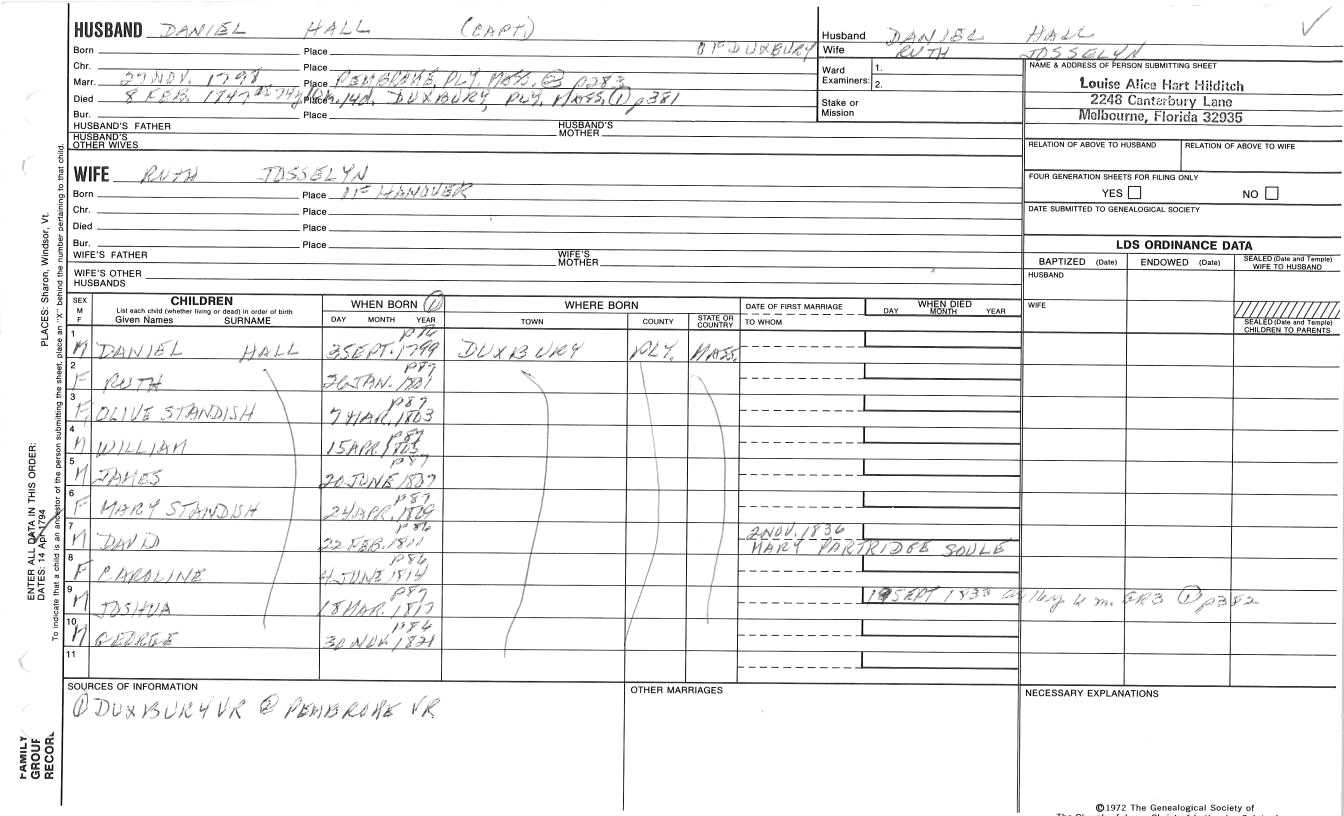 HUSBAND DANIEL HALL (CAPT.)
Born Place OF DUXBURY
Chr. Place
Marr. 27 NOV. 1798 Place PEMBROKE, PLY, MASS. ② p283
Died 8 FEB. 1847 Place 14d. DUXBURY, PLY, MASS, ① p381
Bur. Place
HUSBAND'S FATHER HUSBAND'S MOTHER
HUSBAND'S OTHER WIVES
WIFE RUTH JOSSELYN
Born Place OF HANOVER
Chr. Place
Died Place
Bur. Place
WIFE'S FATHER WIFE'S MOTHER
WIFE'S OTHER HUSBANDS
Husband DANIEL HALL
Wife RUTH JOSSELYN
Ward Examiners: 1.
2.
Stake or Mission
NAME & ADDRESS OF PERSON SUBMITTING SHEET
Louise Alice Hart Hilditch
2248 Canterbury Lane
Melbourne, Florida 32935
RELATION OF ABOVE TO HUSBAND RELATION OF ABOVE TO WIFE
FOUR GENERATION SHEETS FOR FILING ONLY
YES NO
DATE SUBMITTED TO GENEALOGICAL SOCIETY
LDS ORDINANCE DATA
BAPTIZED (Date) ENDOWED (Date) SEALED (Date and Temple) WIFE TO HUSBAND
HUSBAND
WIFE
SEALED (Date and Temple) CHILDREN TO PARENTS
SEX M F
CHILDREN
List each child (whether living or dead) in order of birth
Given Names SURNAME
WHEN BORN ①
DAY MONTH YEAR
WHERE BORN
TOWN COUNTY STATE OR COUNTRY
DATE OF FIRST MARRIAGE
TO WHOM
WHEN DIED
DAY MONTH YEAR
1 M DANIEL HALL 3 SEPT. 1799 p86 DUXBURY PLY. MASS.
2 F RUTH 26 JAN. 1801 p87
3 F OLIVE STANDISH 7 MAR. 1803 p87
4 M WILLIAM 15 APR 1805 p87
5 M JAMES 20 JUNE 1807 p87
6 F MARY STANDISH 24 APR. 1809 p87
7 M DAVID 22 FEB. 1811 p86 2 NOV. 1836
MARY PARTRIDGE SOULE
8 F CAROLINE 4 JUNE 1814 p86
9 M JOSHUA 18 MAR. 1817 p87 19 SEPT 1833 6 m. GR3 ① p382
10 M GEORGE 30 NOV. 1821 p86
11
SOURCES OF INFORMATION
① DUXBURY VR ② PEMBROKE VR
OTHER MARRIAGES
NECESSARY EXPLANATIONS
©1972 The Genealogical Society of
FAMILY GROUP RECORD
ENTER ALL DATA IN THIS ORDER:
DATES: 14 Apr 1794
PLACES: Sharon, Windsor, Vt.
To indicate that a child is an ancestor of the person submitting the sheet, place an "X" behind the number pertaining to that child.